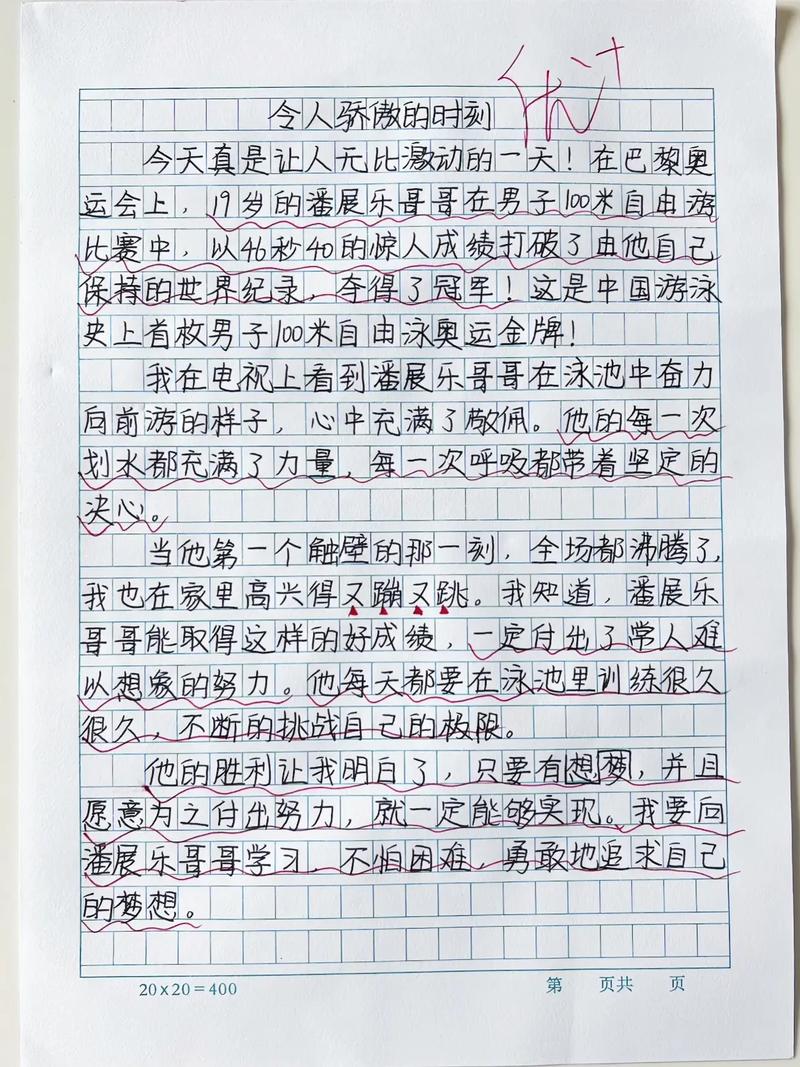 优+
令人骄傲的时刻
今天真是让人无比激动的一天！在巴黎奥
运会上，19岁的潘展乐哥哥在男子100米自由游
比赛中，以46秒40的惊人成绩打破了由他自己
保持的世界纪录，夺得了冠军！这是中国游泳
史上首枚男子100米自由泳奥运金牌！
我在电视上看到潘展乐哥哥在泳池中奋力
向前游的样子，心中充满了敬佩。他的每一次
划水都充满了力量，每一次呼吸都带着坚定的
决心。
当他第一个触壁的那一刻，全场都沸腾了，
我也在家里高兴得又蹦又跳。我知道，潘展乐
哥哥能取得这样的好成绩，一定付出了常人难
以想象的努力。他每天都要在泳池里训练很久
很久，不断的挑战自己的极限。
他的胜利让我明白了，只要有想梦，并且
愿意为之付出努力，就一定能够实现。我要向
潘展乐哥哥学习，不怕困难，勇敢地追求自己
的梦想。
20×20=400 第 页共 页